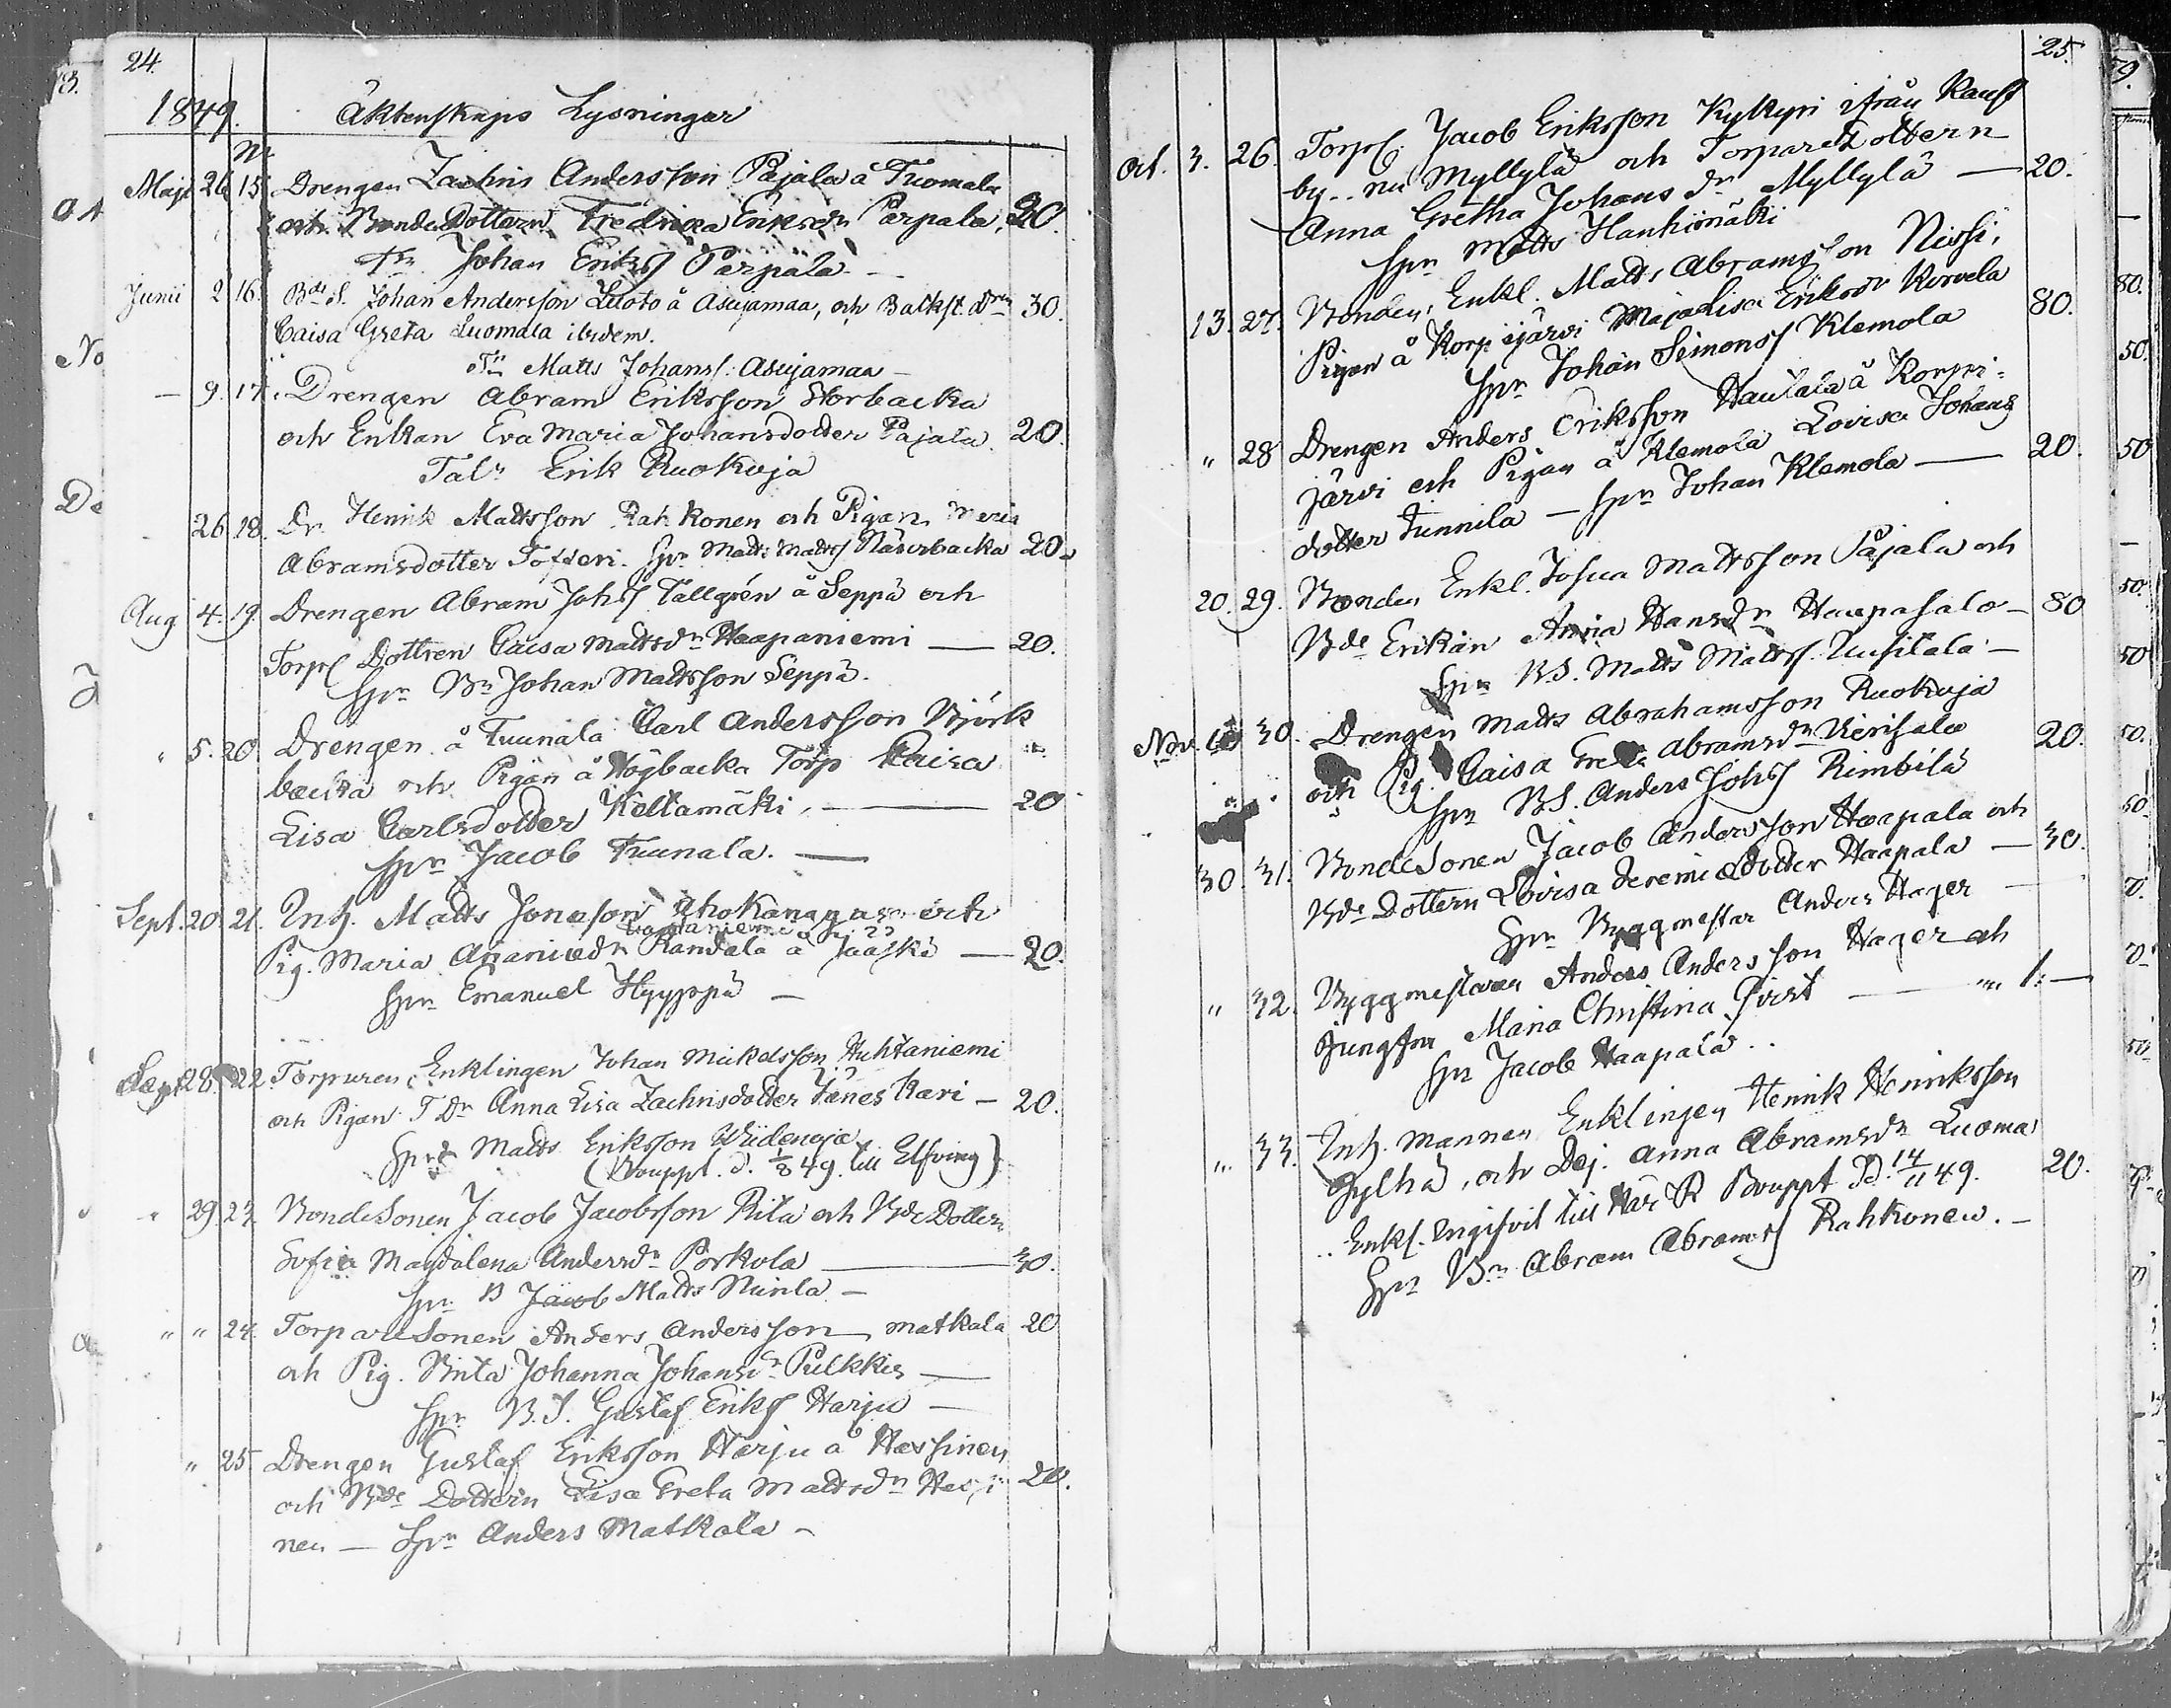 24.
1849. Äktenskaps Lysningar
Nr
Maji 26 15 Drengen Zachris Andersson Pajala å Tuomala
och BondeDottern Fredrica Eriksdr Pärpala, 20.
Tn Johan Erikss Pärpälä —
Junii 2 16. Bde S. Johan Andersson Luoto å Asujamaa, och Backst. drn 30.
Caisa Greta Luomala ibidem.
Tn Matts Johanss: Asujamaa —
— 9. 17. Drengen Abram Eriksson Storbacka
och Enkan Eva Maria Johansdotter Pajala. 20.
Taln Erik Ruokoja
26 18. Dr. Henrik Mattsson Rahkonen och Pigan Maria
Abramsdotter Tofferi. Spn Matts Matts Näserbacka 20.
Aug 4. 19. Drengen Abram Johs Tallgrén å Seppä och
Torp Dottren Caisa Mattsdn Haapaniemi — 20.
Spn Bn Johan Mattsson Seppä.
" 5. 20. Drengen å Tuunala Carl Andersson Björk
backa och Pigan å Högbacka Torp Kaisa
Lisa Carlsdotter Keltamäki. — 20
Spn Jacob Tuunala. —
Sept. 20. 21. Inh. Matts Jonasson Ahokangas och
Pig. Maria Ananiædn Randala å Jääskä — 20.
Spn Emanuel Hyyppä —
Sept 28. 22. Torparen, Enklingen Johan Mickelsson Huhtaniemi
och Pigan T Dr Anna Lisa Zachrisdotter Jäneskari — 20.
Spn Matts Eriksson Wiidenoja
(Bouppt. d. 1/8 49. till Elfving)
" 29 23. BondeSonen Jacob Jacobsson Rita och Bde Dottern
Sofia Magdalena Andersdn Porkola — 30.
Spn B Jacob Matts Niinla —
" " 24. TorpareSonen Anders Andersson Matkala 20
och Pig. Brita Johanna Johansdn Pulkkis —
Spn B. S. Gustaf Eriks Harju —
" 25. Drengen Gustaf Eriksson Harju å Hassinen
och Bde Dottern Lisa Greta Mattsdn Hassi 20.
nen — Spn Anders Matkala —
25.
Oct. 3. 26. Torp. Jacob Eriksson Kykyri ifrån Kaust
by .. nu Myllylä och TorpareDottern
Anna Gretha Johansdn Myllylä — 20.
Spn Matts Hanhimäki
13. 27. Bonden, Enkl. Matts Abramsson Nissi,
Pigan å Korpijärvi Maja Lisa Eriksdr Korvela 80.
Spn Johan Simons Klemola
" 28 Drengen Anders Eriksson Hautala å Korpi-
järvi och Pigan å Klemola Lovisa Johans
dotter Tunnila — Spn Johan Klemola — 20.
20. 29. Bonden Enkl. Josua Mattsson Pajala och
Bde Enkan Anna Hansdn Haapasalo — 80
Spn B.S. Matts Matts. Uusitalo —
Nov. 30. Drengen Matts Abrahamsson Ruokoja
och Pig. Caisa Greta Abramsdn Vierisalo 20.
Spn B.S. Anders Johs Rimbilä
30. 31. BondeSonen Jacob Andersson Haapala och
Bde Dottern Lovisa Jeremiædotter Haapala — 30.
Spn Byggmestar Anders Hager —
" 32. Byggmestaren Anders Andersson Hager och
Jungfru Maria Christina Qvist — 1: —
Spn Jacob Haapala ..
" 33. Inh. mannen Enklingen Henrik Henriksson
Gylhä, och Dej. Anna Abramsdn Luoma 20.
.. Enkl. Bouppt D. 14/11 49.
Spn Bn Abram Abrams Rahkonen. —